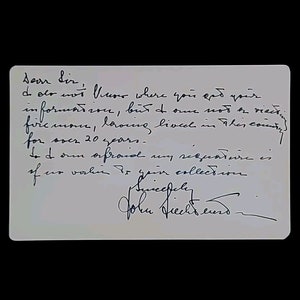 Dear Sir,
I do not know where you get your
information, but I am not a
fireman, having lived in this country
for over 20 years.
So I am afraid my signature is
of no value to your collection
Sincerely
John